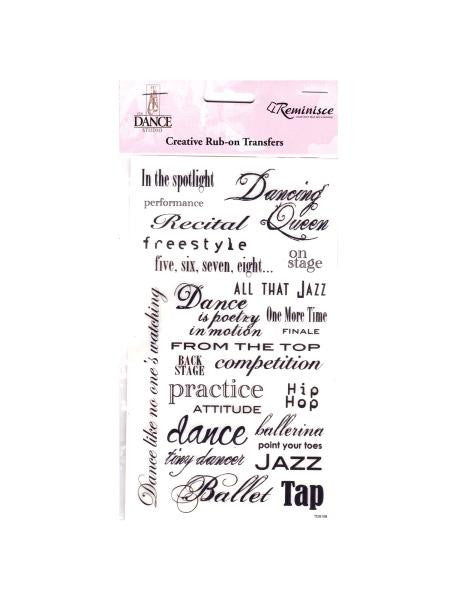 the
DANCE
STUDIO
Reminisce
Creative Rub-on Transfers
In the spotlight
Dancing
Queen
performance
Recital
freestyle
on
stage
five, six, seven, eight...
ALL THAT JAZZ
Dance
is poetry
in motion
One More Time
FINALE
FROM THE TOP
BACK
STAGE
competition
practice
Hip
Hop
ATTITUDE
dance
ballerina
point your toes
tiny dancer
JAZZ
Ballet
Tap
Dance like no one's watching